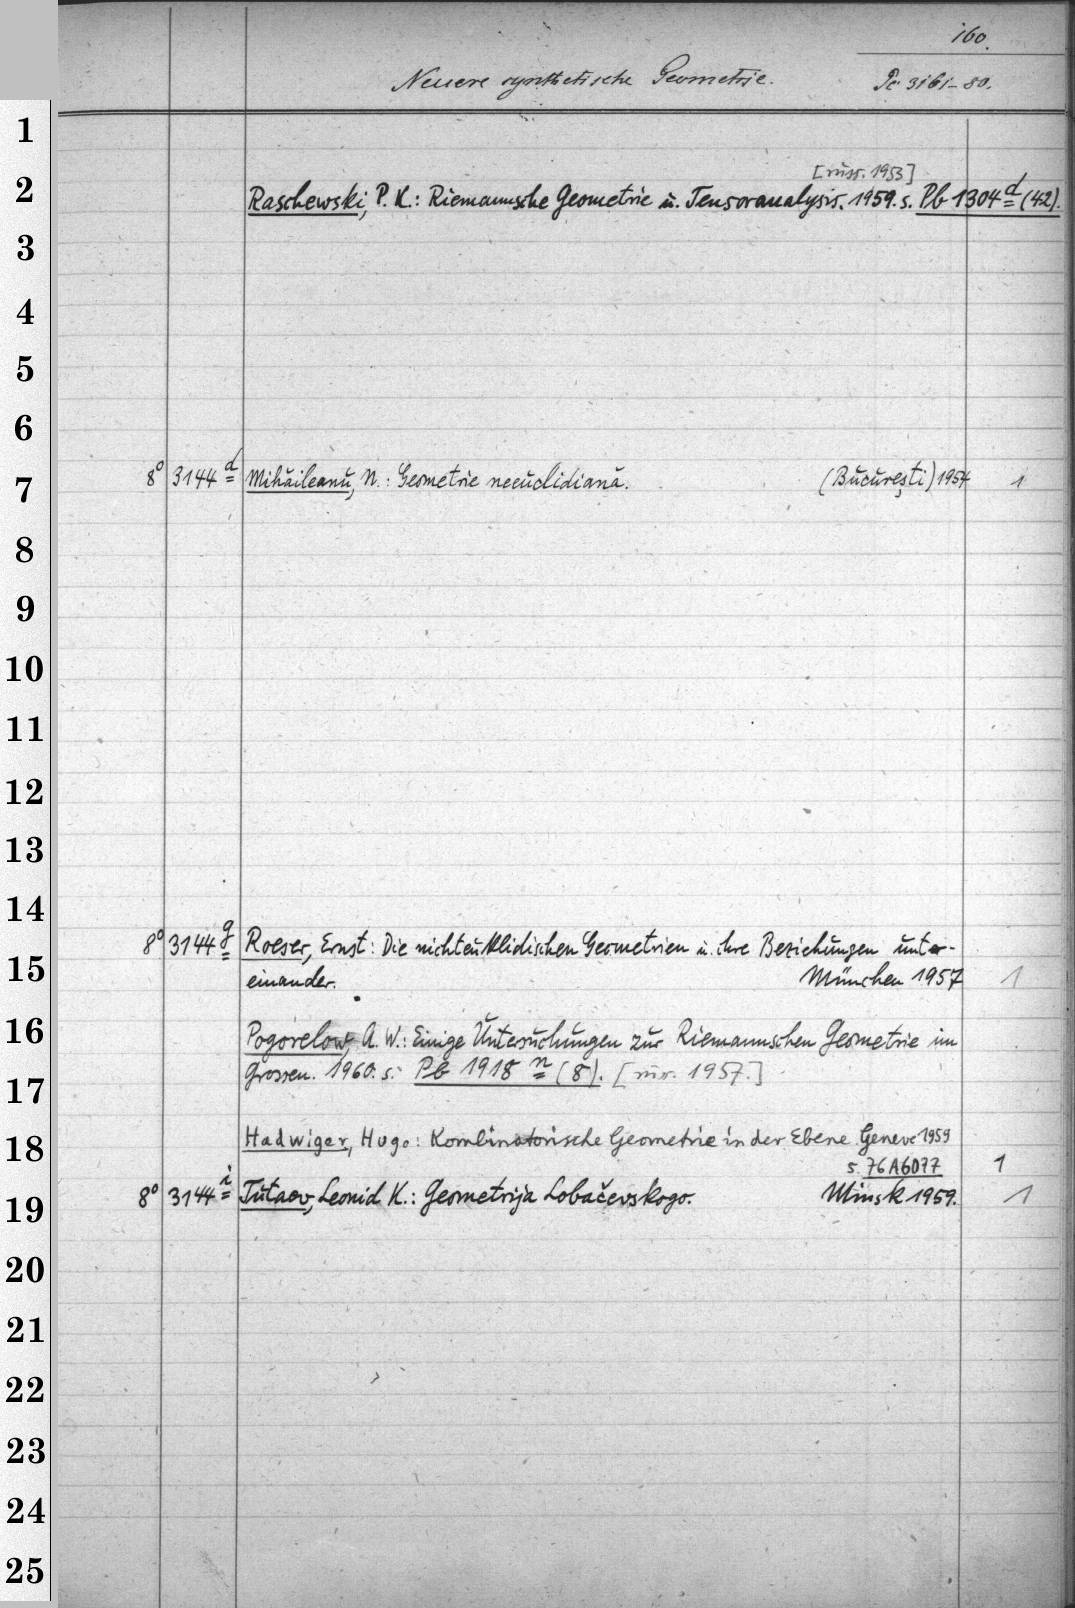 160.
Neuere synthetische Geometrie.
Pc 3161-80.
1
[russ. 1953]
2 Raschewski, P. K.: Riemannsche Geometrie u. Tensoranalysis. 1959. s. Pb 1304 d (42).
3
4
5
6
7 8° 3144 d Mihăileanu, N.: Geometrie neeuclidiană. (București) 1954 1
8
9
10
11
12
13
14
8° 3144 g Roeser, Ernst: Die nichteuklidischen Geometrien u. ihre Beziehungen unter-
15 einander. München 1957 1
16 Pogorelow, A. W.: Einige Untersuchungen zur Riemannschen Geometrie im
17 Grossen. 1960. s. Pb 1918 n (8). [russ. 1957.]
18 Hadwiger, Hugo: Kombinatorische Geometrie in der Ebene Geneve 1959
s. 76A6077 1
19 8° 3144 i Tutaev, Leonid K.: Geometrija Lobačevskogo. Minsk 1959. 1
20
21
22
23
24
25